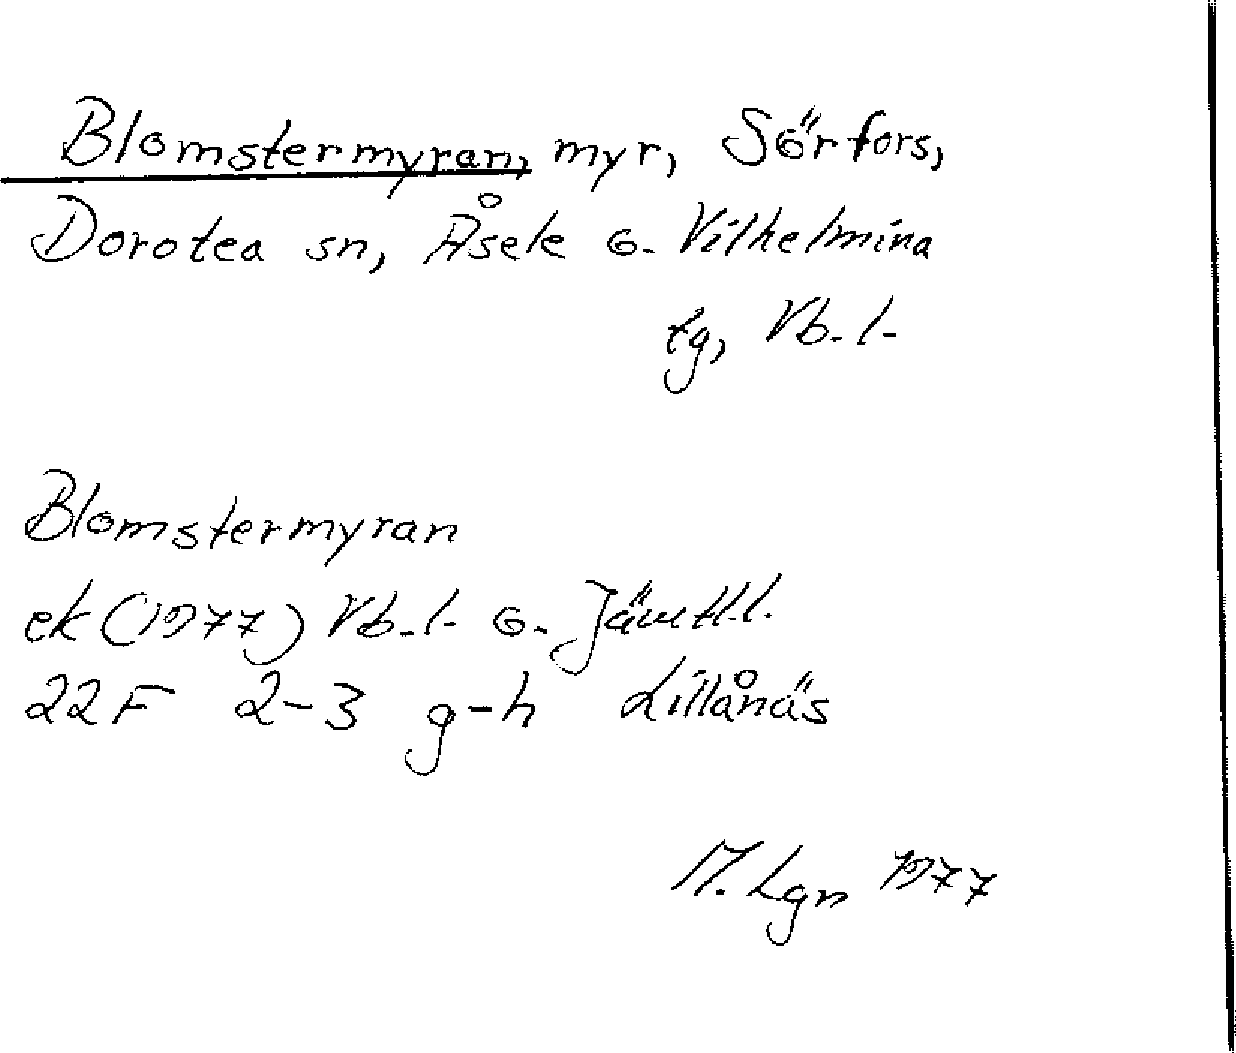 Blomstermyran, myr, Sörfors,
Dorotea sn, Åsele o. Vilhelmina
tg, Vb. l.
Blomstermyran
ek (1977) Vb. l. o. Jämtl. l.
22F 2-3 g-h Lillånäs
M. Lgn 1977